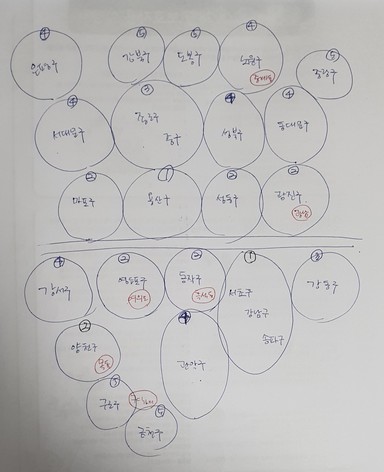 ④ ⑤ ⑤ ④ ⑤
은평구 강북구 도봉구 노원구 중랑구
④ ③ ④ ④
서대문구 종로구 성북구 동대문구
중구
② ① ② ②
마포구 용산구 성동구 광진구
광장
④ ② ② ① ③
강서구 영등포구 동작구 서초구 강동구
여의도 강남구
② ④ 송파구
양천구 관악구
목동
③
구로구
⑤
금천구